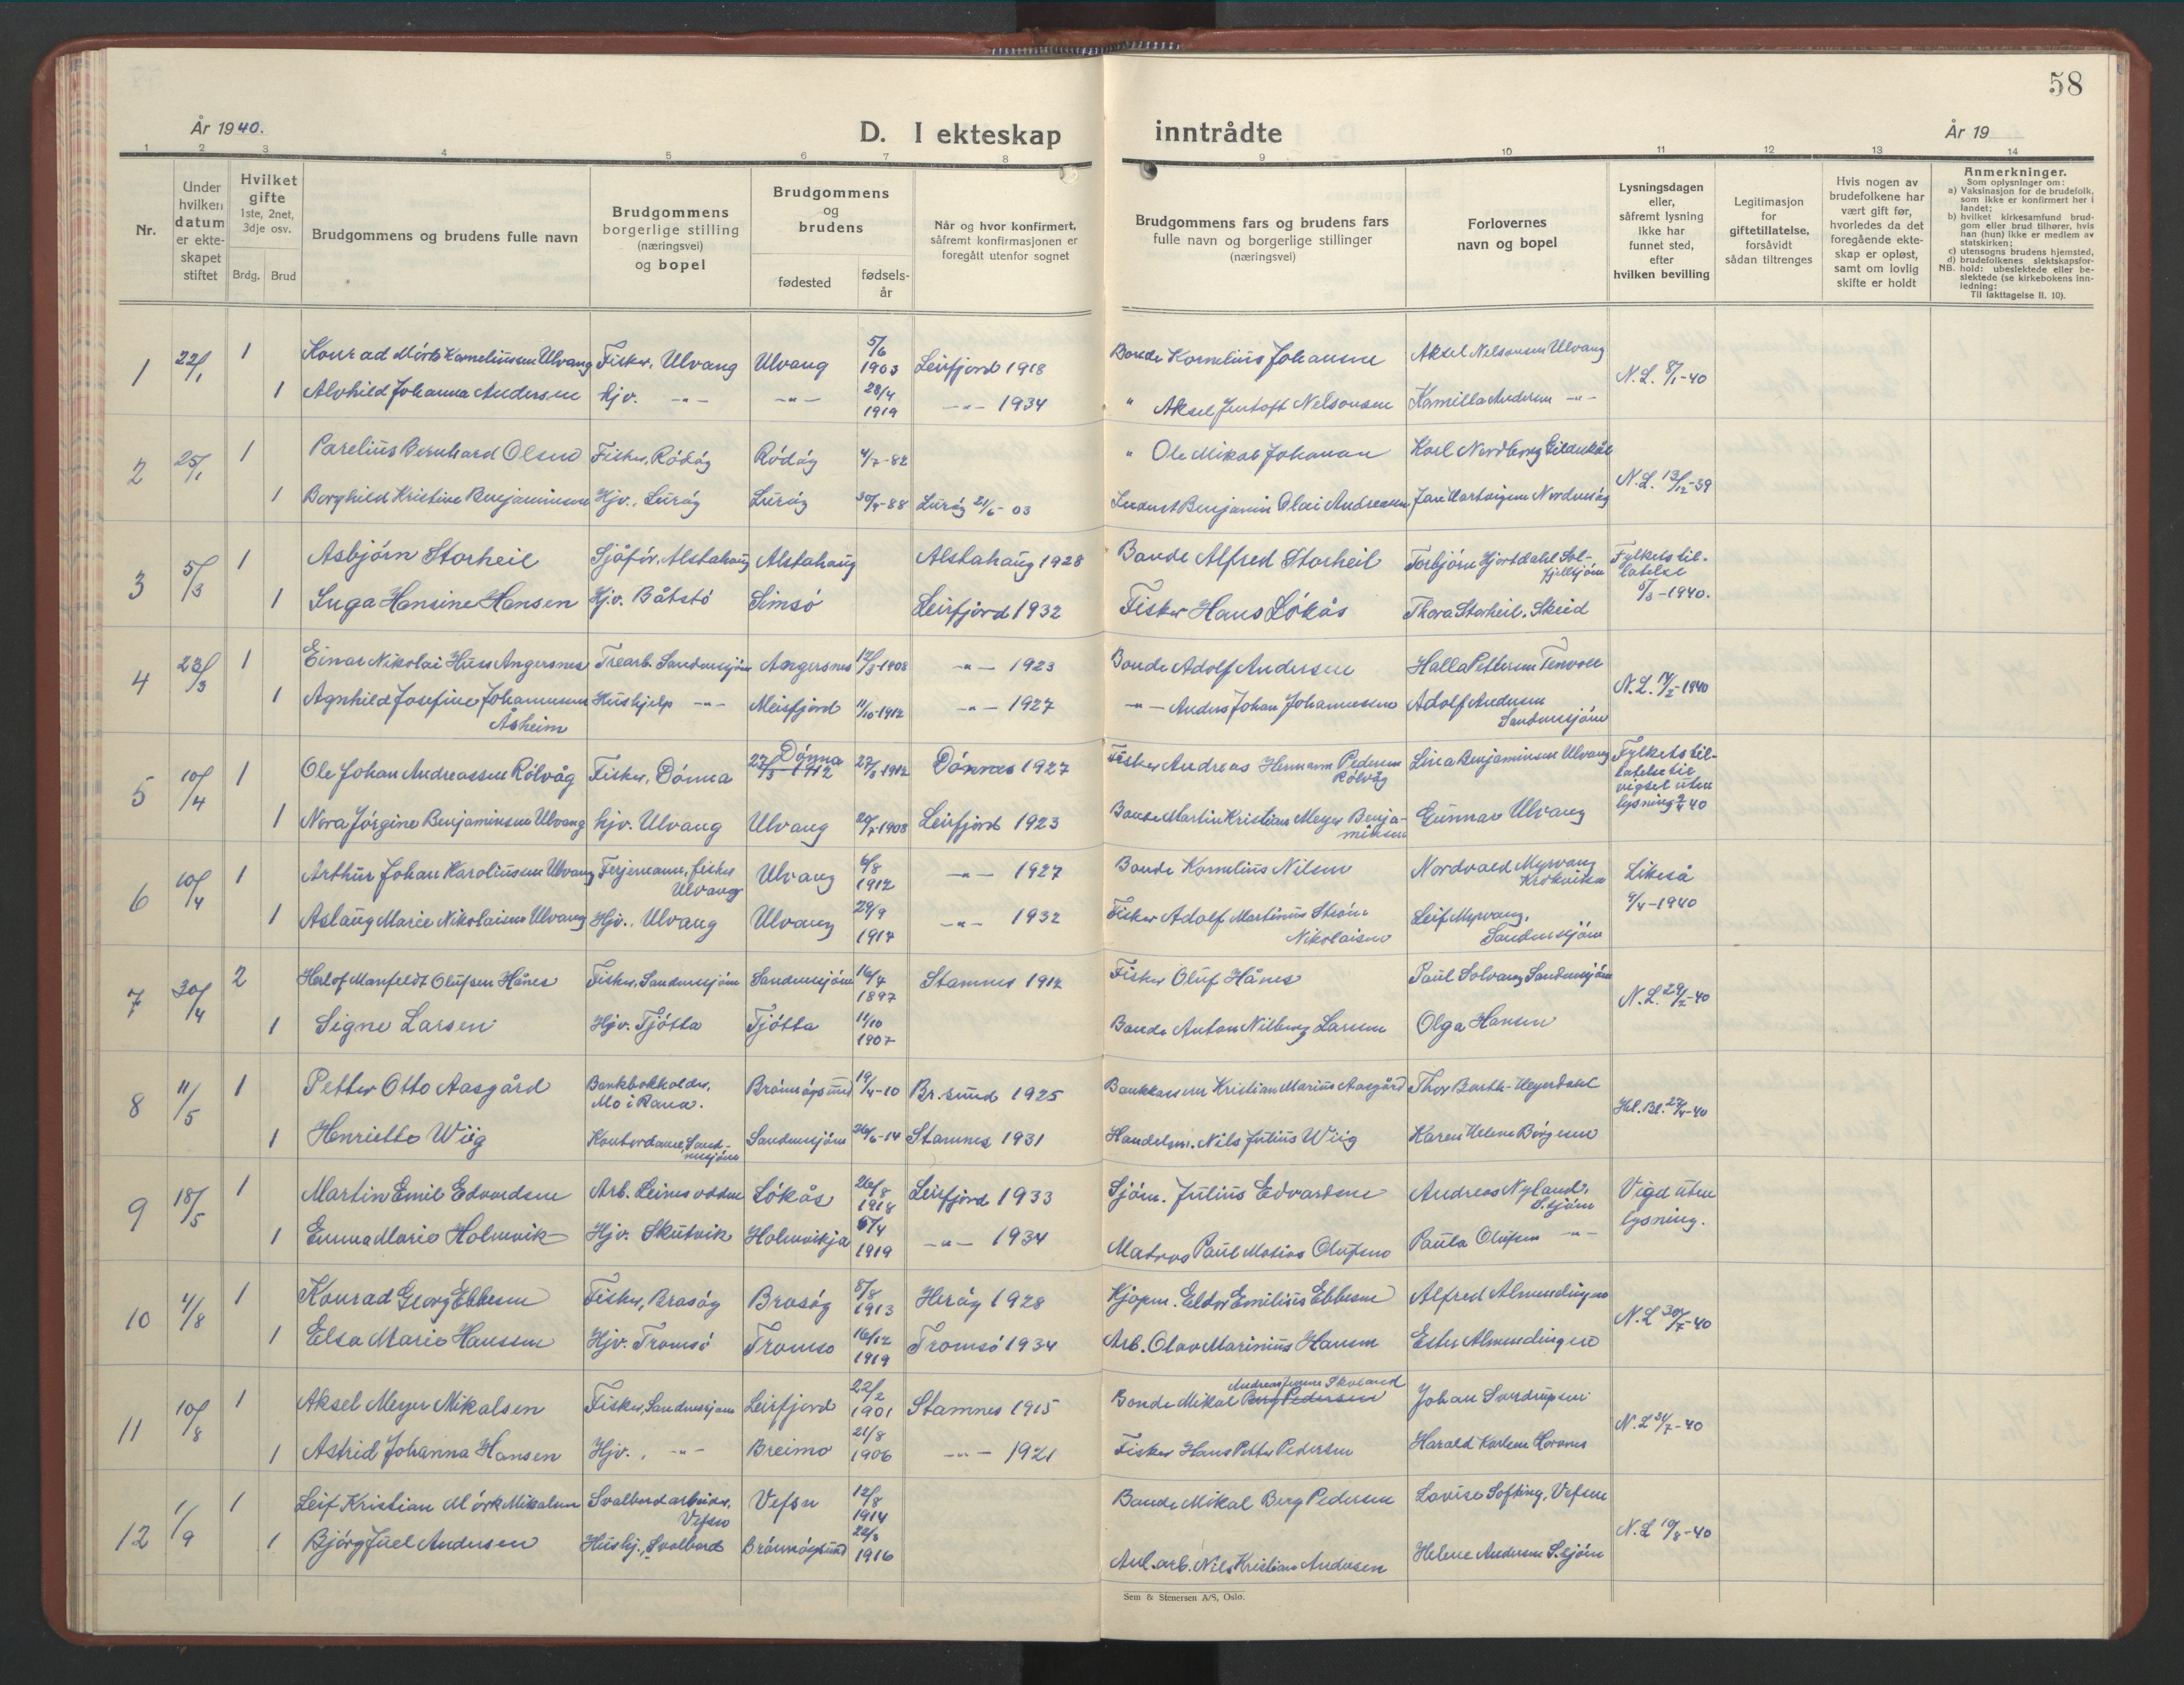 58
År 1940.
D. I ekteskap inntrådte
År 19
1 2 3 4 5 6 7 8 9 10 11 12 13 14
Nr.
Under hvilken datum er ekteskapet stiftet
Hvilket gifte 1ste, 2net, 3dje osv.
Brdg. Brud
Brudgommens og brudens fulle navn
Brudgommens borgerlige stilling (næringsvei) og bopel
Brudgommens og brudens
fødested
fødselsår
Når og hvor konfirmert, såfremt konfirmasjonen er foregått utenfor sognet
Brudgommens fars og brudens fars fulle navn og borgerlige stillinger (næringsvei)
Forlovernes navn og bopel
Lysningsdagen eller, såfremt lysning ikke har funnet sted, efter hvilken bevilling
Legitimasjon for giftetillatelse, forsåvidt sådan tiltrenges
Hvis nogen av brudefolkene har vært gift før, hvorledes da det foregående ekteskap er opløst, samt om lovlig skifte er holdt
Anmerkninger.
Som oplysninger om:
a) Vaksinasjon for de brudefolk, som ikke er konfirmert her i landet;
b) hvilket kirkesamfund brudgom eller brud tilhører, hvis han (hun) ikke er medlem av statskirken;
c) utensogns brudens hjemsted,
d) brudefolkenes slektskapsforhold: ubeslektede eller beslektede (se kirkebokens innledning:
NB. Til iakttagelse II. 10).
1 22/1 1 Konrad Mørk Korneliussen Ulvang Fisker, Ulvang Ulvang 5/6 1903 Leirfjord 1918 Bonde Kornelius Johansen Aksel Nelsonsen Ulvang N.L. 8/1-40
1 Alvhild Johanna Andersen hjv. -"- -"- 28/4 1919 -"- 1934 " Aksel Jentoft Nelsonsen Kamilla Andersen -"-
2 25/1 1 Parelius Bernhard Olsen Fisker, Rödøy Rödøy 4/7-82 " Ole Mikal Johansen Karl Nordberg Gildeskål N.L. 13/12-39
1 Borghild Kristine Benjaminsen Hjv., Lurøy Lurøy 30/4-88 Lurøy 21/6-03 Benjamin Olai Andreassen Jane Hartvigsen
3 5/3 1 Asbjørn Storheil Sjåfør, Alstahaug Alstahaug Alstahaug 1928 Bonde Alfred Storheil Torbjørn Hjortdahl Fylkets tillatelse
1 Inga Hansine Hansen Hjv. Båtstø Simsø Leirfjord 1932 Fisker Hans Løkås Thora Storheil, Skeid 5/3-1940.
4 23/3 1 Einar Nikolai Huss Angersnes Trearb. Sandnessjøen Angersnes 12/3-1908 -"- 1923 Bonde Adolf Andersen Halla Pettersen Tenvoll N.L. 14/2-1940
1 Agnhild Josefine Johannessen Åsheim Hushjelp -"- Meisfjord 11/10-1912 -"- 1927 -"- Anders Johan Johannessen Adolf Andersen Sandnessjøen
5 10/4 1 Ole Johan Andreassen Rølvåg Fisker, Dønna Dønna 27/3 1912 27/3 1912 Dønnes 1927 Fisker Andreas Hermann Pedersen Rølvåg Lina Benjaminsen Ulvang Fylkets tillatelse til vigsel uten lysning 9/4 40
1 Nora Jørgine Benjaminsen Ulvang hjv. Ulvang Ulvang 28/7-1908 Leirfjord 1923 Bonde Martin Kristian Meyer Benjaminsen Gunnar Ulvang
6 10/4 1 Arthur Johan Karoliussen Ulvang Ferjemann, fisker Ulvang Ulvang 6/8 1912 -"- 1927 Bonde Kornelius Nilsen Nordvald Myrvang Krokvika Likeså 9/4-1940
1 Aslaug Marie Nikolaisen Ulvang Hjv., Ulvang Ulvang 29/9 1917 -"- 1932 Fisker Adolf Martinus Strøm Nikolaisen Leif Myrvang, Sandnessjøen
7 30/4 2 Herlof Manfeldt Olufsen Hånes Fisker, Sandnessjøen Sandnessjøen 16/7 1897 Stamnes 1912 Fisker Oluf Hånes Paul Solvang Sandnessjøen N.L. 29/2-40
1 Signe Larsen Hjv. Tjøtta Tjøtta 11/10 1907 Bonde Anton Nilberg Larsen Olga Hansen
8 11/5 1 Petter Otto Aasgård Bankbokholder, Mo i Rana. Brønnøysund 19/4-10 Br.sund 1925 Bankkasserer Kristian Marius Aasgård Thor Barth-Heyerdahl Hel. Bl. 27/4-40
1 Henriette Wiig Kontordame, Sandnessjøen Sandnessjøen 26/6-14 Stamnes 1931 Handelsm. Nils Julius Wiig Karen Helene Børgesen
9 18/5 1 Martin Emil Edvardsen Arb. Leinesodden Løkås 26/8 1918 Leirfjord 1933 Sjøm. Julius Edvardsen Andreas Nyland, S.sjøen Vigd uten lysning.
1 Emma Marie Holmvik Hjv. Skutvik Holmvikja 5/4 1919 -"- 1934 Matros Paul Matias Olufsen Paula Olufsen -"-
10 4/8 1 Konrad Georg Ebbesen Fisker, Brasøy Brasøy 8/8 1913 Herøy 1928 Kjøpm. Eldor Emilius Ebbesen Alfred Almendingen N.L 30/7-40
1 Elsa Marie Hanssen Hjv. Tromsø Tromsø 16/12 1919 Tromsø 1934 Arb. Olav Marinius Hansen Ester Almendingen
11 10/8 1 Aksel Meyer Mikalsen Fisker, Sandnessjøen Leirfjord 22/2 1901 Stamnes 1915 Bonde Mikal Berg Pedersen Johan Sverdrupsen N.L 31/7-40
1 Astrid Johanna Hansen Hjv., -"- Breimo 21/8 1906 -"- 1921 Fisker Hans Petter Pedersen Harald Karlsen
12 1/9 1 Leif Kristian Mørk Mikalsen Svalbardarbeider, Vefsn Vefsn 12/8 1914 Bonde Mikal Berg Pedersen Lovise Softing, Vefsn N.L 19/8-40
1 Bjørg Juel Andersen Hushj., Svalbard Brønnøysund 22/3 1916 Anl.arb. Nils Kristian Andersen Helene Andersen S.sjøen
Sem & Stenersen A/S, Oslo.